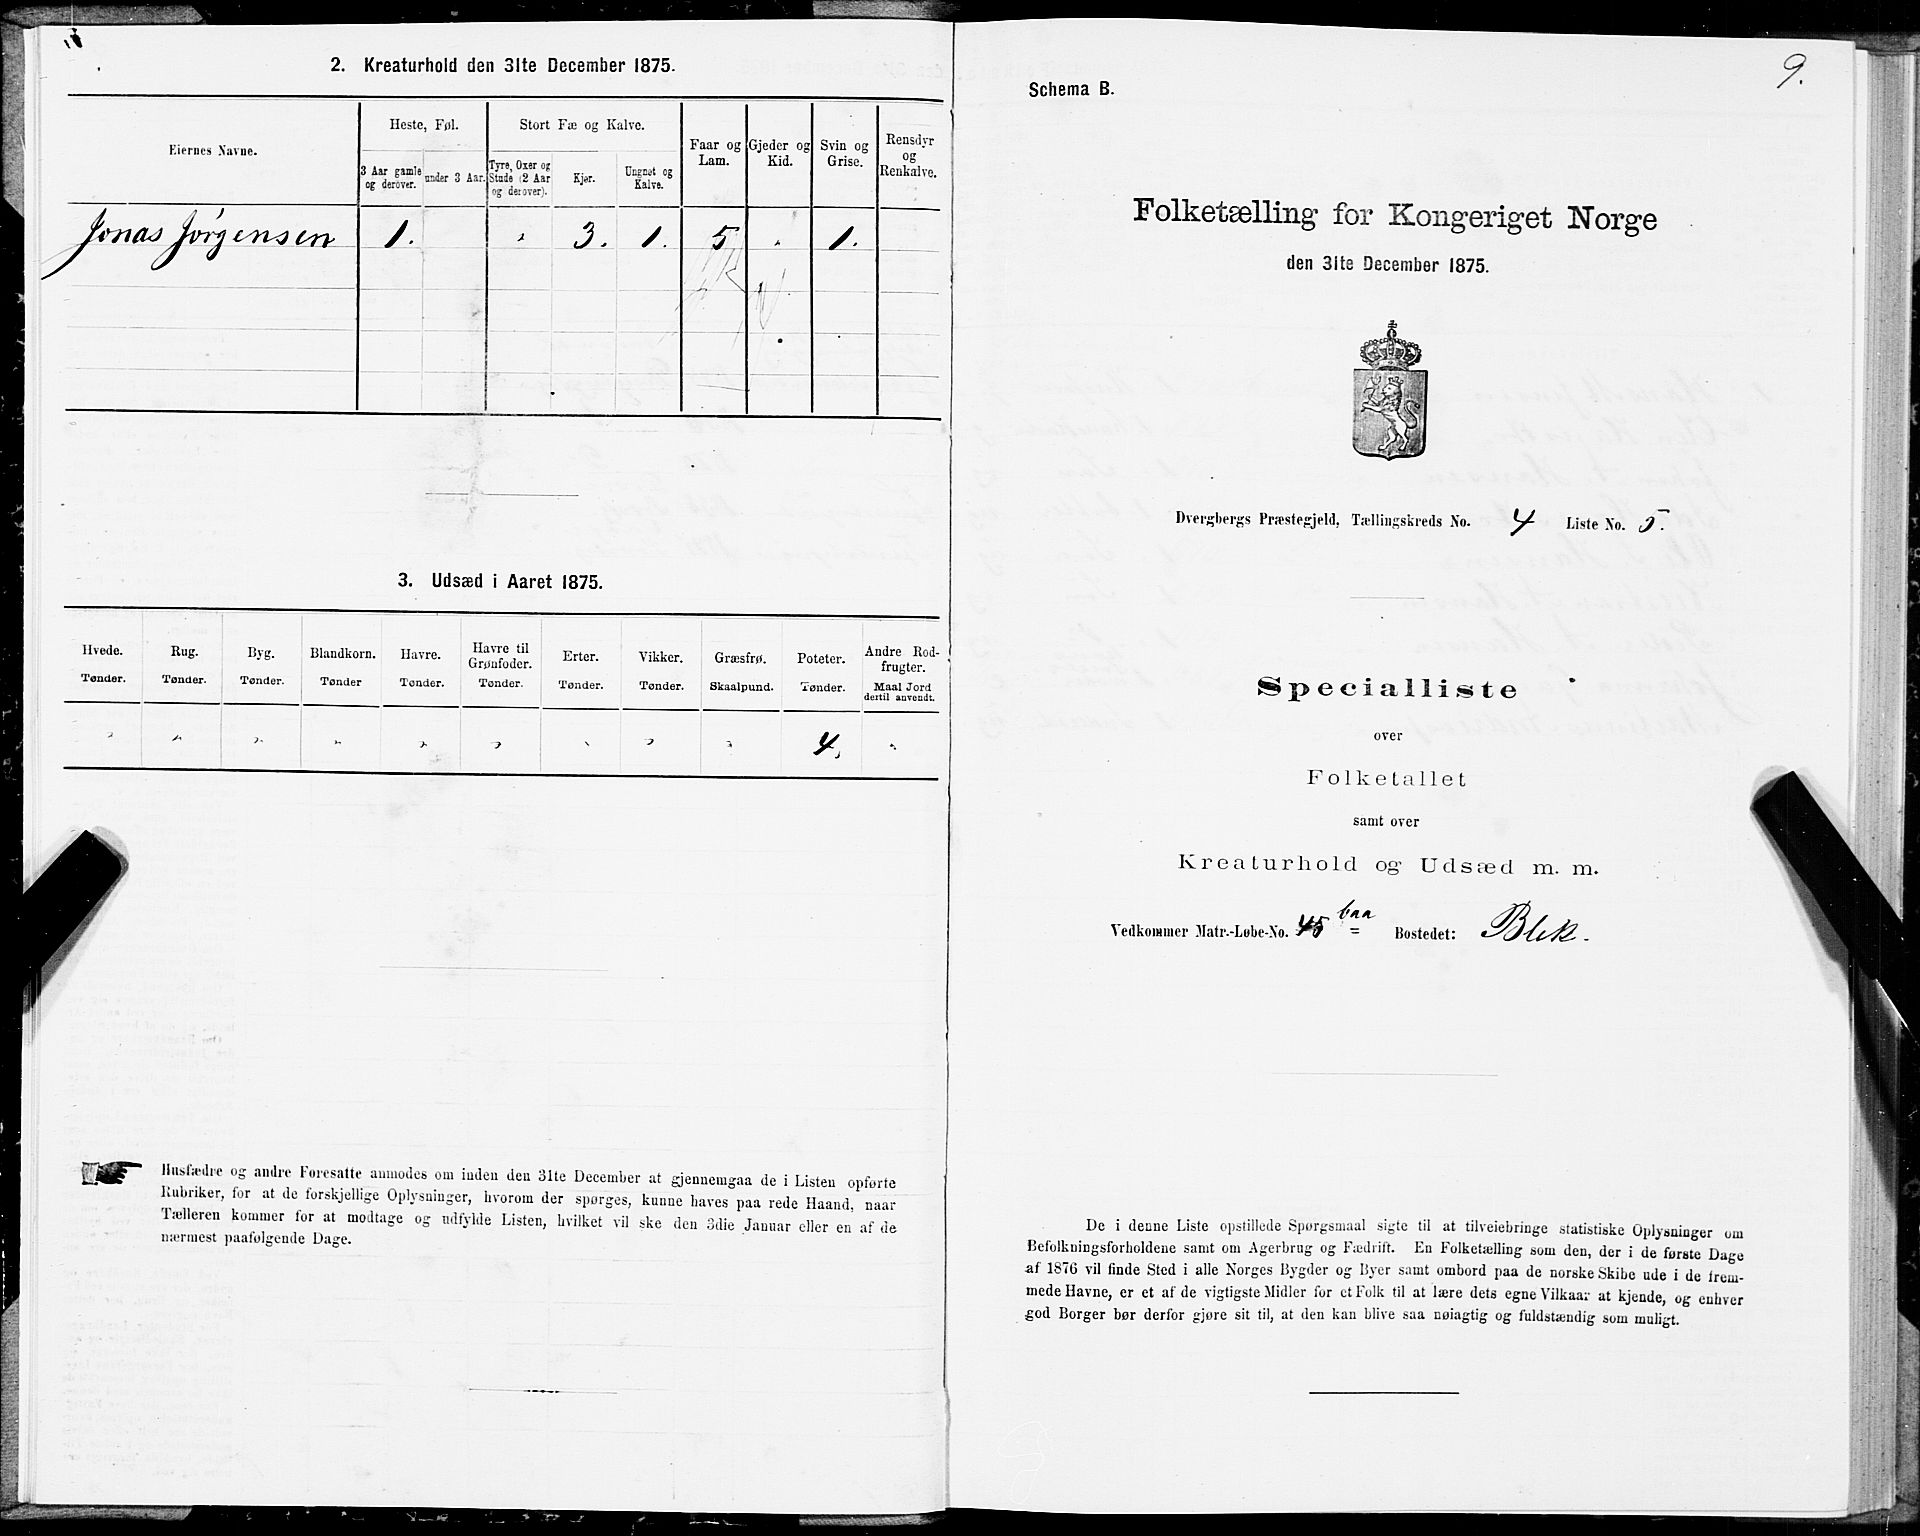 2. Kreaturhold den 31te December 1875.
Eiernes Navne.
Heste, Føl.
Stort Fæ og Kalve.
3 Aar gamle og derover.
under 3 Aar.
Tyre, Oxer og Stude (2 Aar og derover).
Kjør.
Ungnøt og Kalve.
Faar og Lam.
Gjeder og Kid.
Svin og Grise.
Rensdyr og Renkalve.
Jonas Jørgensen 1. " 3. 1. 5 " 1.
3. Udsæd i Aaret 1875.
Hvede. Rug. Byg. Blandkorn. Havre. Havre til Grønfoder. Erter. Vikker. Græsfrø. Poteter. Andre Rodfrugter.
Tønder. Tønder. Tønder. Tønder Tønder. Tønder. Tønder. Tønder. Skaalpund. Tønder. Maal Jord dertil anvendt.
" " " " " " " " " 4, "
Husfædre og andre Foresatte anmodes om inden den 31te December at gjennemgaa de i Listen opførte
Rubriker, for at de forskjellige Oplysninger, hvorom der spørges, kunne haves paa rede Haand, naar
Tælleren kommer for at modtage og udfylde Listen, hvilket vil ske den 3die Januar eller en af de
nærmest paafølgende Dage.
9.
Schema B.
Folketælling for Kongeriget Norge
den 31te December 1875.
Dvergbergs Præstegjeld, Tællingskreds No. 4 Liste No. 5.
Specialliste
over
Folketallet
samt over
Kreaturhold og Udsæd m. m.
Vedkommer Matr.-Løbe-No. 45 baa Bostedet: Blek.
De i denne Liste opstillede Spørgsmaal sigte til at tilveiebringe statistiske Oplysninger om
Befolkningsforholdene samt om Agerbrug og Fædrift. En Folketælling som den, der i de første Dage
af 1876 vil finde Sted i alle Norges Bygder og Byer samt ombord paa de norske Skibe ude i de frem-
mede Havne, er et af de vigtigste Midler for et Folk til at lære dets egne Vilkaar at kjende, og enhver
god Borger bør derfor gjøre sit til, at den kan blive saa nøiagtig og fuldstændig som muligt.